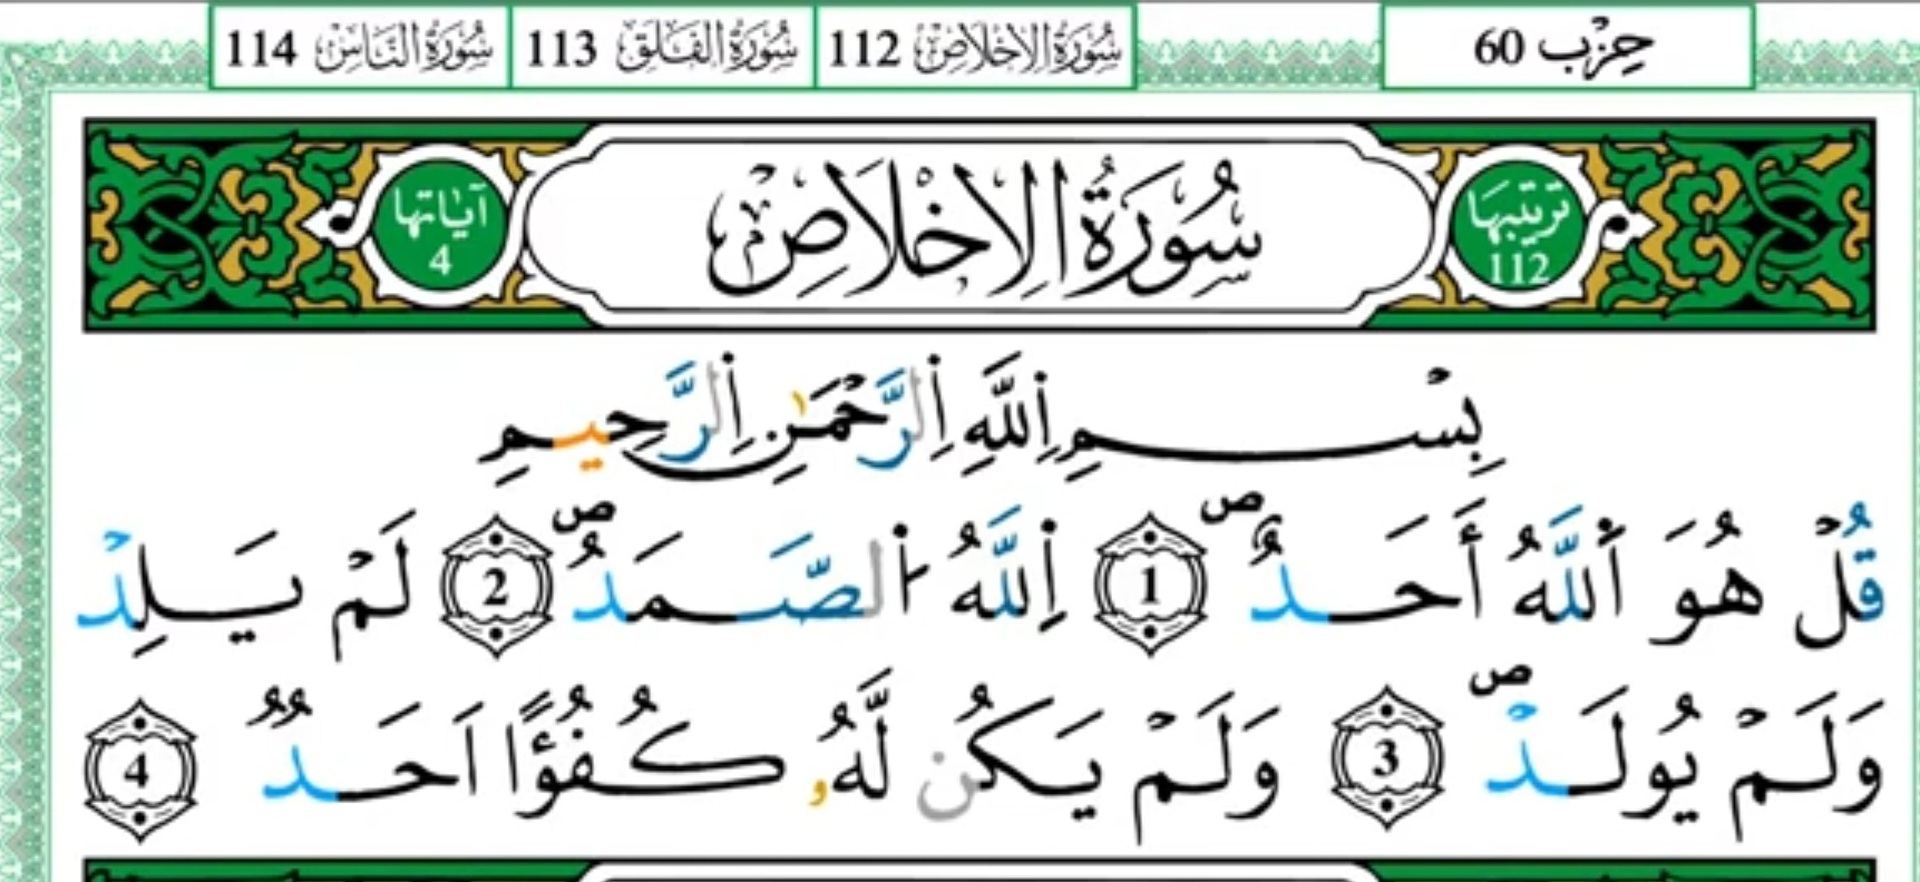 حِزْب 60
سُورَةُ الِاخْلَاصِ 112 سُورَةُ الفَلَقِ 113 سُورَةُ النَّاسِ 114
تَرْتِيبُهَا 112 سُورَةُ الِاخْلَاصِ آيَاتُهَا 4
بِسْمِ اِ۬للَّهِ اِ۬لرَّحْمَٰنِ اِ۬لرَّحِيمِ
قُلْ هُوَ اَ۬للَّهُ أَحَدٌ ۖ 1 اِ۬للَّهُ اُ۬لصَّمَدُ ۖ 2 لَمْ يَلِدْ
وَلَمْ يُولَدْ ۖ 3 وَلَمْ يَكُن لَّهُۥ كُفُؤًا اَحَدٌ 4